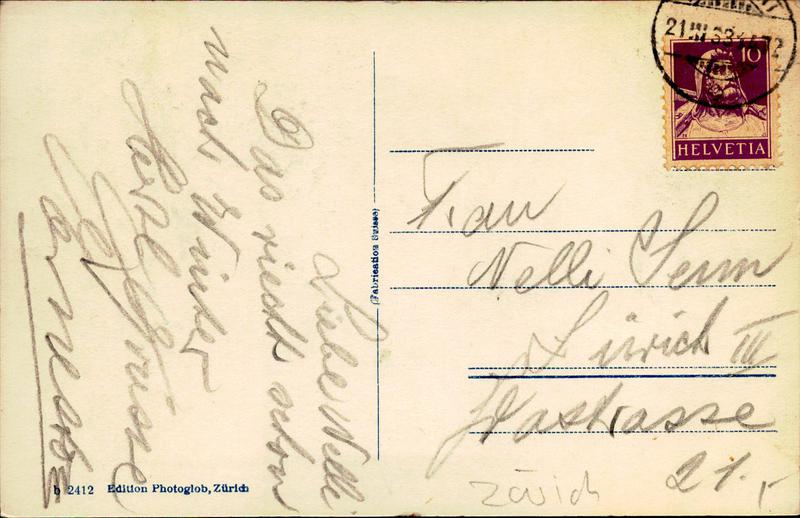 Liebe Nelli
Das riecht schon
nach Winter
Herzl. Grüsse
(Fabrication Suisse)
21.III.33
10
HELVETIA
Frau
Nelli Senn
Zürich III
21.-
Zürich
b 2412 Edition Photoglob, Zürich